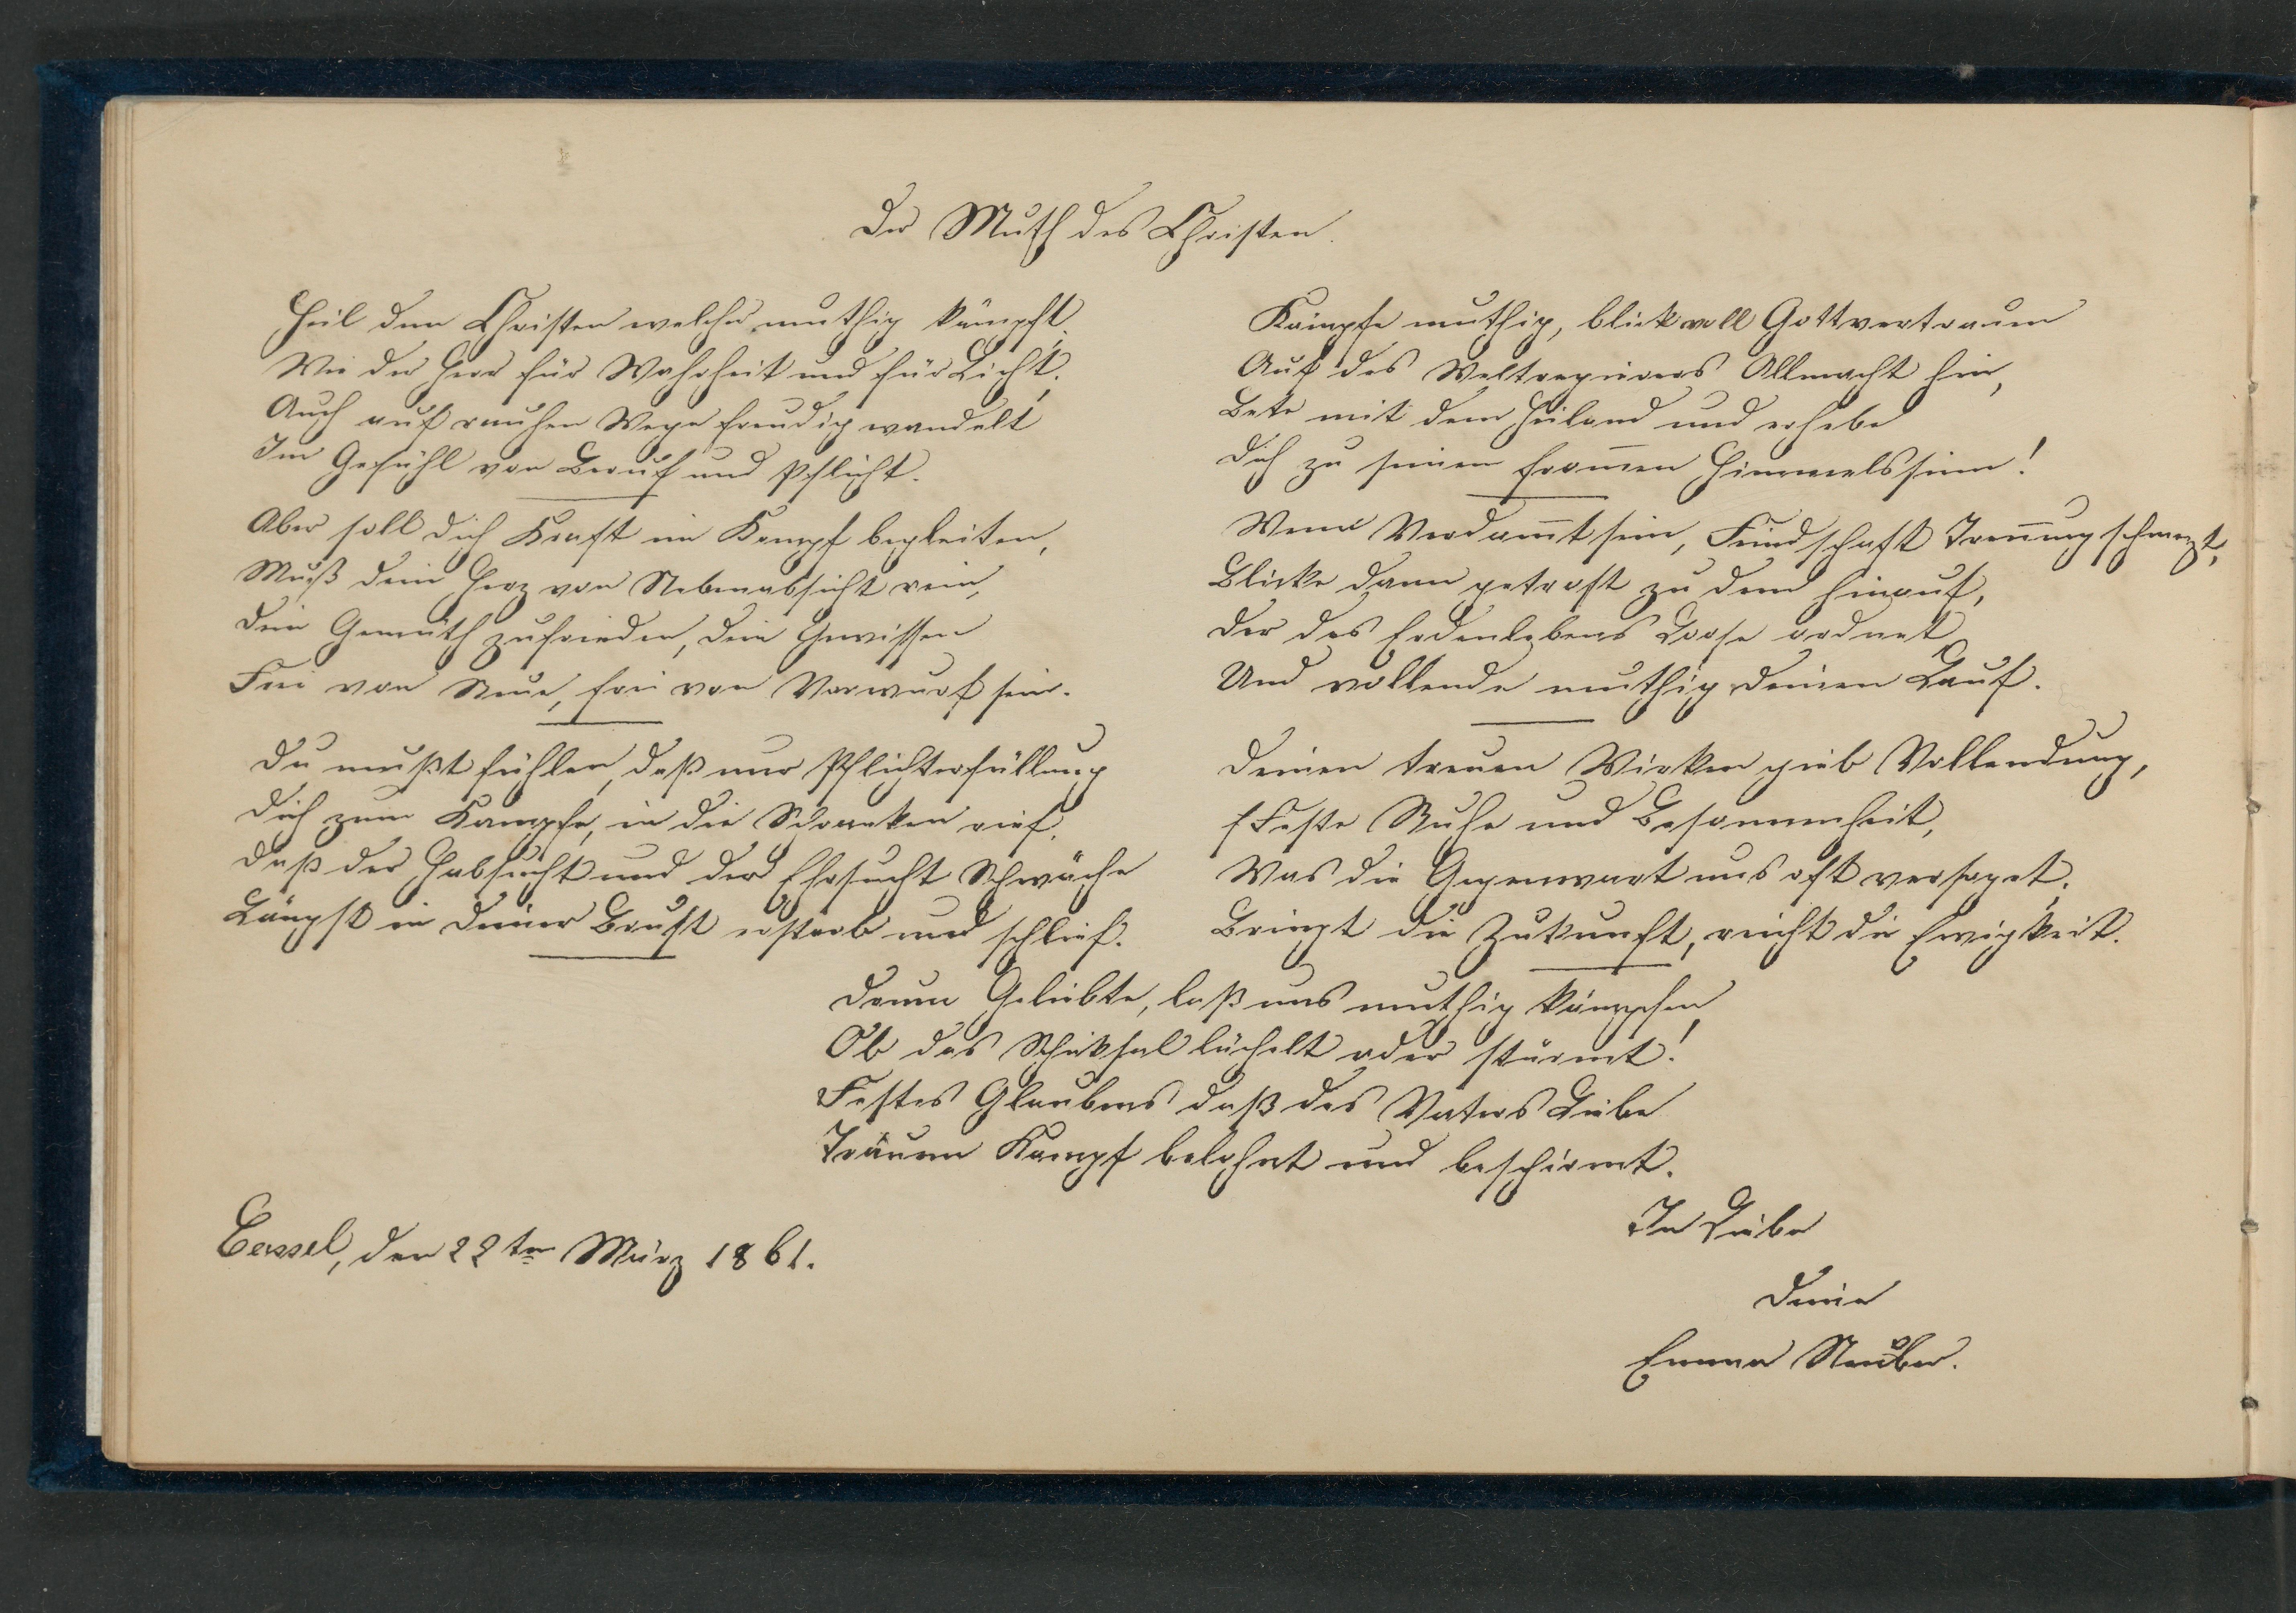 Der Muth des Christen.
Heil dem Christen welcher muthig kämpft,
Wie der Herr für Wahrheit und für Licht,
Auch auf rauhen Wege freudig wandelt
Im Gefühl von Beruf und Pflicht.
Aber soll dich Kraft im Kampf begleiten,
Muß dein Herz von Nebenabsicht rein,
Dein Gemüth zufrieden, dein Gewissen
Frei von Reue, frei von Vorwurf sein.
Du mußt fühlen, daß nur Pflichterfüllung
Dich zum Kampfe, in die Schranken rief,
Daß der Habsucht und der Ehrsucht Schwäche
Längst in deiner Brust erstarb und schlief.
Kämpfe muthig, blick voll Gottvertrauen
Auf des Weltregierers Allmacht hin,
Bete mit dem Heiland und erhebe
Dich zu seinem from̄en Himmelssinn!
Wenn Verdam̄tsein, Feindschaft Tren̄ung schmerzt,
Blicke dann getrost zu dem hinauf,
Der des Erdenlebens Loose ordnet
Und vollende muthig deinen Lauf.
Deinen treuen Wirken gieb Vollendung,
Feste Ruhe und Besonnenheit,
Was die Gegenwart uns oft versaget,
Bringt die Zukunft, reicht die Ewigkeit.
Drum Geliebte, laß uns muthig kämpfen,
Ob das Schicksal lächelt oder stürmt!
Festes Glaubens daß des Vaters Liebe
Treuen Kampf belohnt und beschirmt.
In Liebe
Cassel, den 22ten März 1861.
Deine
Emma Neuber.